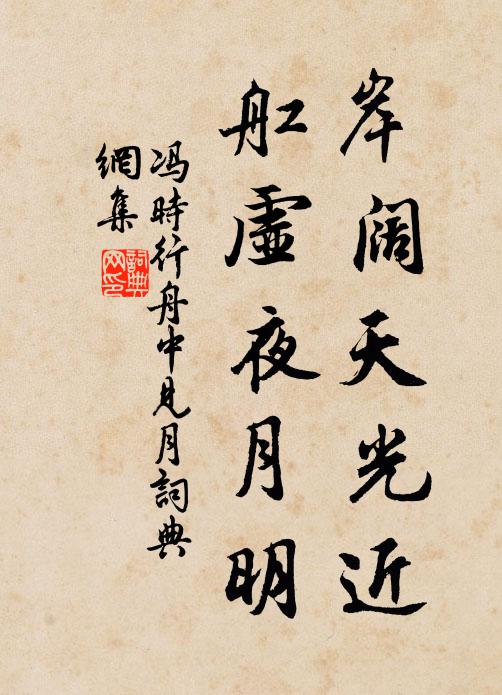 岸阔天光近
舡虛夜月明
冯時行舟中見月詞典
網集
詞典網印